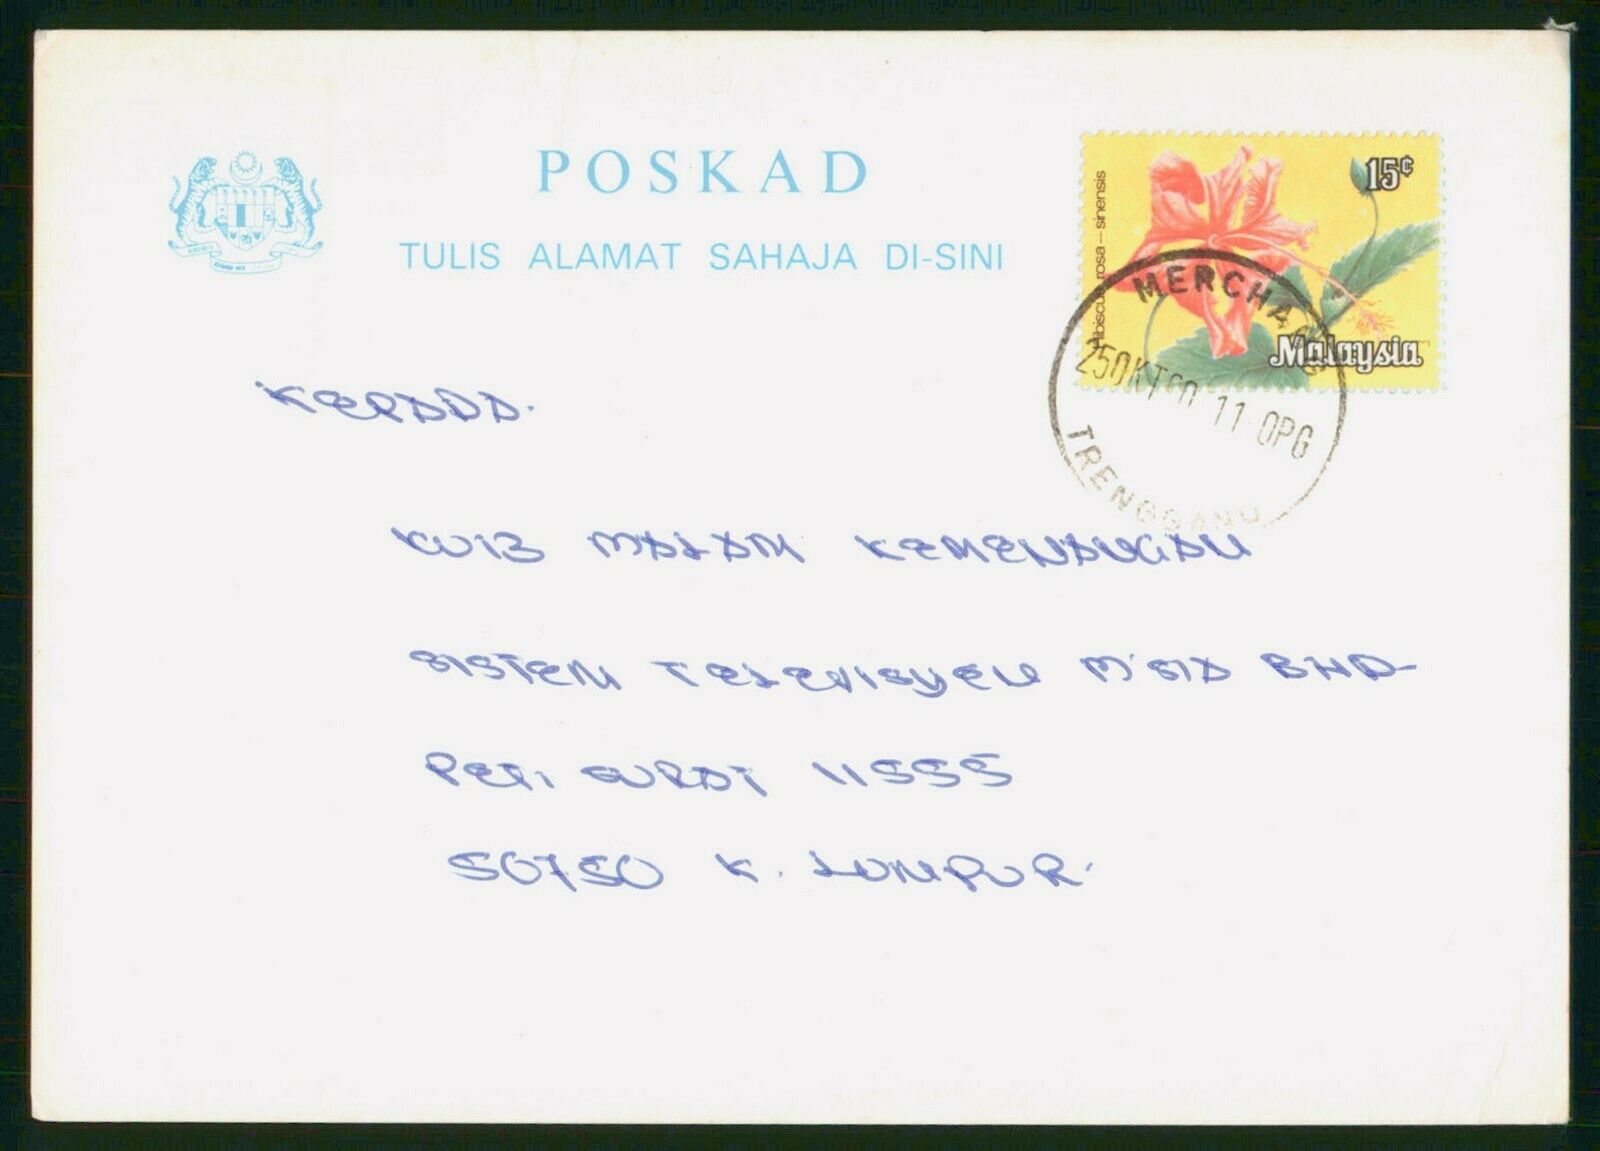 POSKAD
TULIS ALAMAT SAHAJA DI-SINI
15¢
Hibiscus rosa-sinensis
Malaysia
MERCHANG
25OKT 11·0PG
TRENGGANU
KEPADA.
KUIZ MALAM KEMENANGAN
SISTEM TELEVISYEN M'SIA BHD
PETI SURAT 11555
50750 K. LUMPUR.